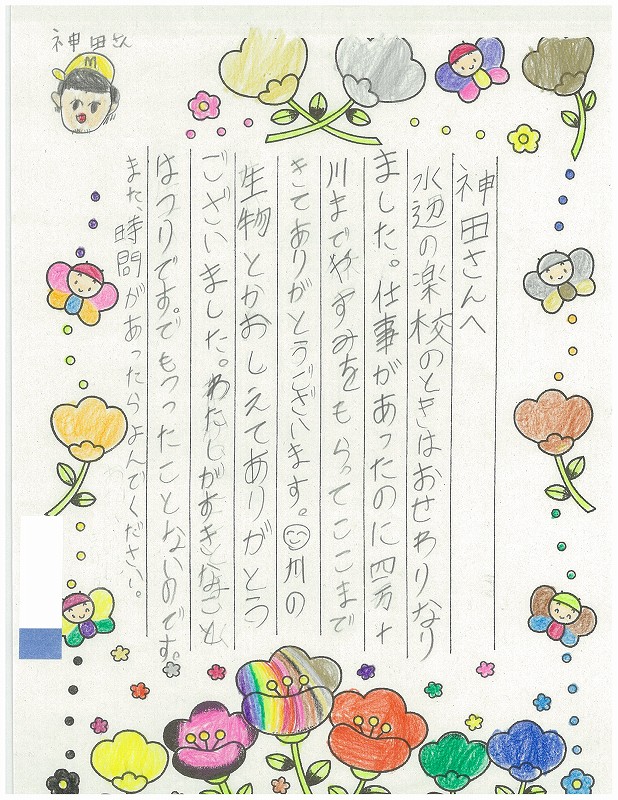 神田さん
M
神田さんへ
水辺の楽校のときはおせわりなり
ました。仕事があったのに四万十
川までやすみをもらってここまで
きてありがとうございます。☺川の
生物とかおしえてありがとう
ございました。わたしがすきなこと
はつりです。でもつったことないのです。
また、時間があったらよんでください。